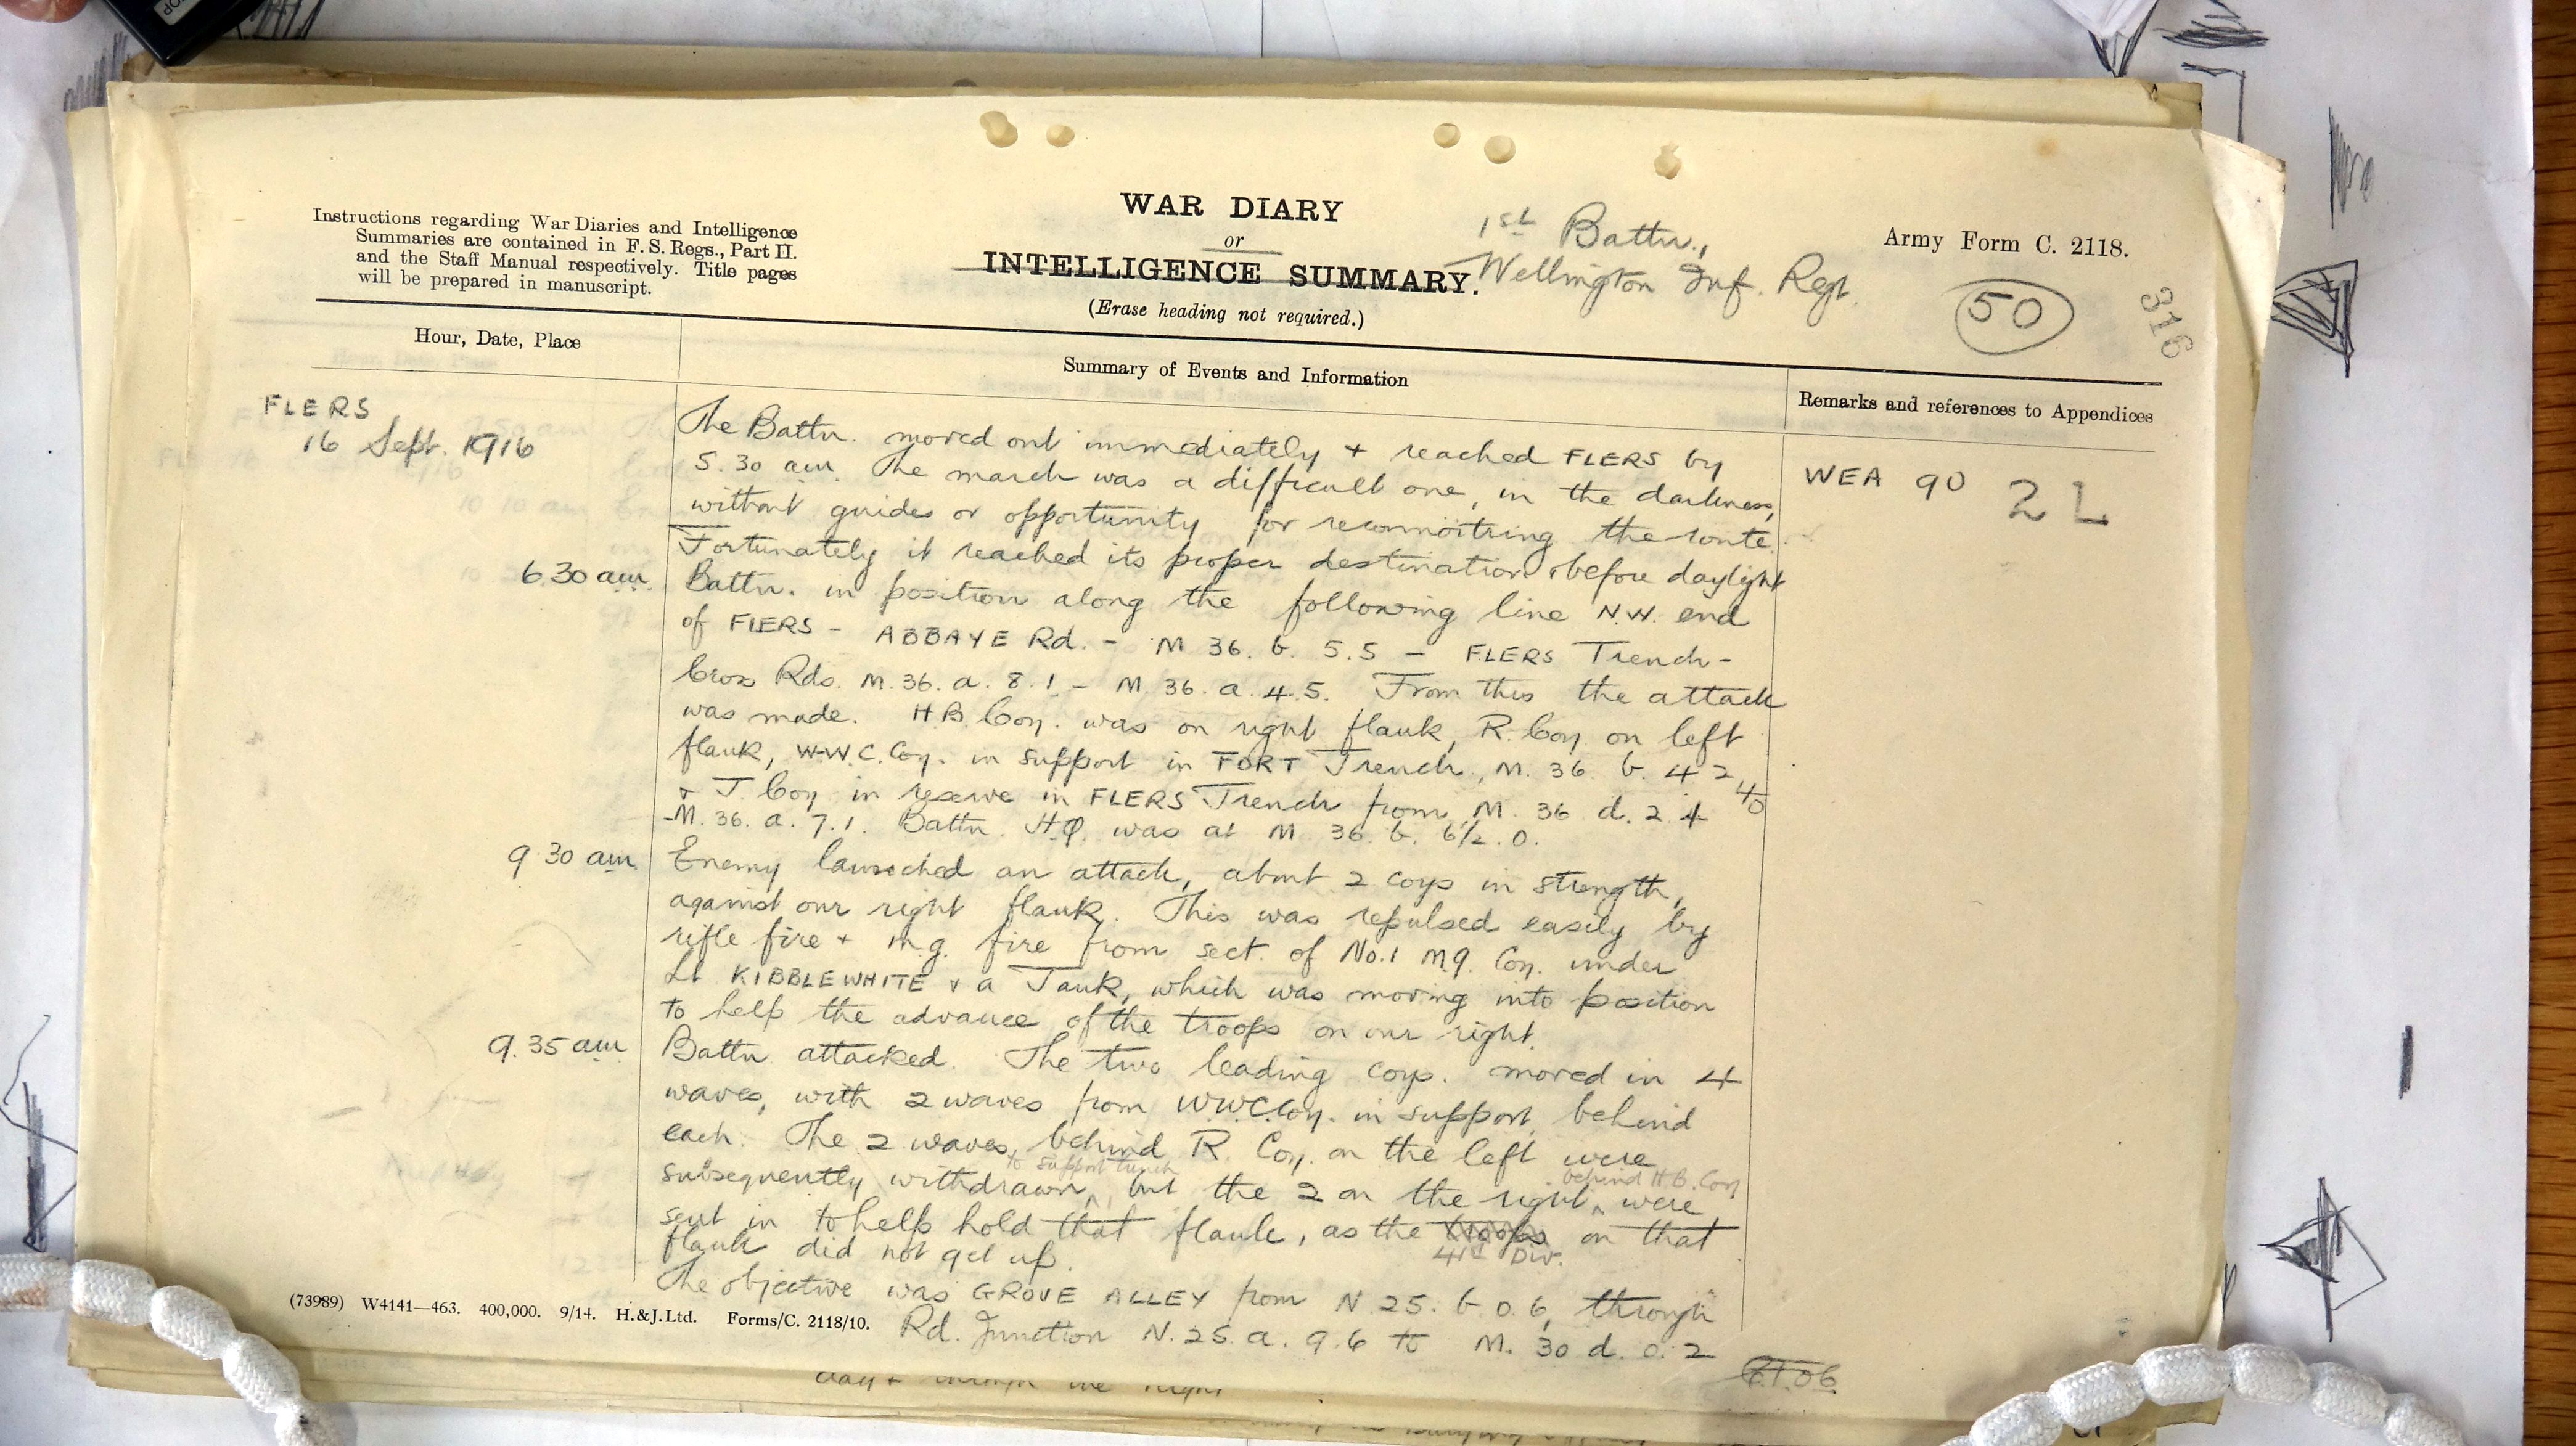 WAR DIARY
or
INTELLIGENCE SUMMARY.
(Erase heading not required.)
Instructions regarding War Diaries and Intelligence
Summaries are contained in F. S. Regs., Part II.
and the Staff Manual respectively. Title pages
will be prepared in manuscript.
1st Battn.,
Wellington Inf. Regt.
Army Form C. 2118.
50
316
Hour, Date, Place
Summary of Events and Information
Remarks and references to Appendices
FLERS
16 Sept. 1916
WEA 90 2 L
The Battn. moved out immediately + reached FLERS by
5.30 am. The march was a difficult one, in the darkness,
without guides or opportunity for reconnoitring the route.
Fortunately it reached its proper destination before daylight
6.30 am
Battn. in position along the following line N.W. end
of FLERS - ABBAYE Rd. - M 36. b. 5.5 - FLERS Trench -
Cross Rds. M. 36. a. 8.1 - M. 36. a. 4.5. From this the attack
was made. H.B. Coy. was on right flank, R. Coy on left
flank, W.W.C. Coy. in support in FORT Trench, M. 36. b. 4 2,
+ T. Coy in reserve in FLERS Trench from M. 36 d. 2 4 to
-M. 36. a. 7.1. Battn. H.Q. was at M 36. b. 6½.0.
9.30 am
Enemy launched an attack, about 2 coys in strength,
against our right flank. This was repulsed easily by
rifle fire + m.g. fire from sect. of No.1 M.G. Coy. under
Lt KIBBLEWHITE + a Tank, which was moving into position
to help the advance of the troops on our right.
9.35 am
Battn attacked. The two leading coys. moved in 4
waves, with 2 waves from W.W.C. Coy. in support behind
each. The 2 waves, behind R. Coy. on the left were
to support trench
behind H.B. Coy
subsequently withdrawn, but the 2 on the right were
sent in to help hold that flank, as the troops on that
41st Div.
flank did not get up.
The objective was GROVE ALLEY from N 25. b 0.6, through
Rd. Junction N. 25. a. 9.6 to M. 30 d. 0.2
(73989) W4141—463. 400,000. 9/14. H.&J.Ltd. Forms/C. 2118/10.
day + through the night